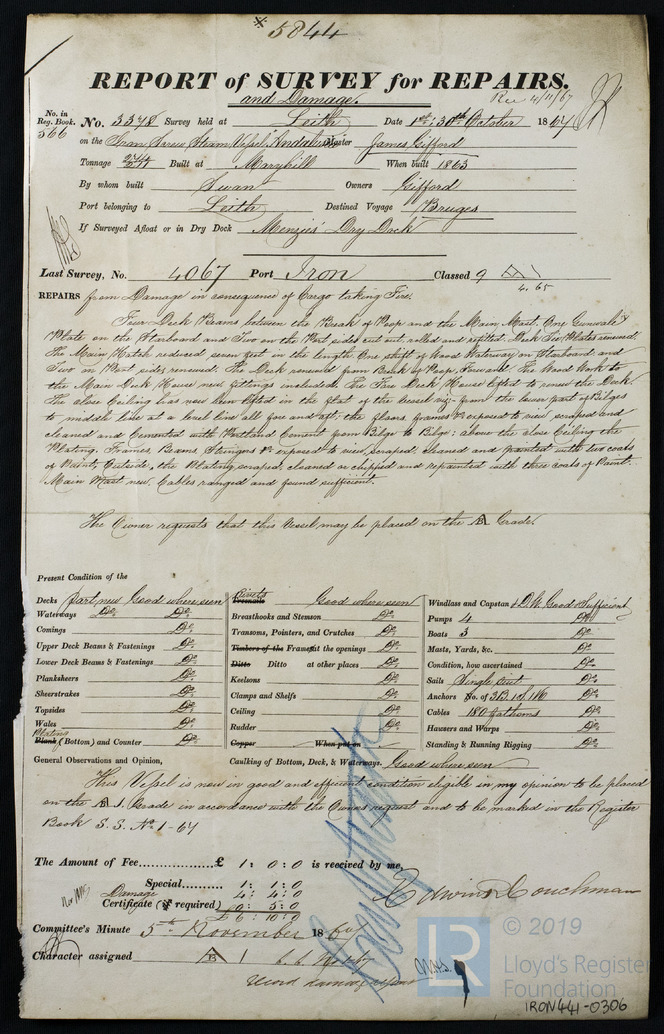 5844
REPORT of SURVEY for REPAIRS.
and Damage.
Rec 4/11/67
No. in Reg. Book. 566
No. 3378 Survey held at Leith Date 1st : 30th October 1867
on the Iron Screw Steam Vessel "Andalusia" Master James Gifford
Tonnage 244 Built at Maryhill When built 1863
By whom built Swan Owners Gifford
Port belonging to Leith Destined Voyage Bruges
If Surveyed Afloat or in Dry Dock Menzies' Dry Dock
Last Survey, No. 4067 Port Iron Classed 9 A 1
4. 65
REPAIRS from Damage in consequence of Cargo taking Fire.
Four Deck Beams between the Break of Poop and the Main Mast. One Gunwale
Plate on the Starboard and Two on the Port sides cut out, rolled and refitted. Deck Tie Plates renewed.
The Main Hatch reduced seven feet in the length. One shift of Wood Waterway on Starboard and
Two on Port sides renewed. The Deck renewed from Break of Poop, Forward. The Wood Work to
the Main Deck House new fittings included. The Fire Deck House lifted to renew the Deck.
The close Ceiling has now been lifted in the flat of the Vessel viz:- from the lower part of Bilges
to middle line at a level line all fore and aft: the floors, frames &c exposed to view, scraped and
cleaned and Cemented with Portland Cement from Bilge to Bilge; above the close Ceiling the
Plating, Frames, Beams, Stringers &c exposed to view, scraped, cleaned and painted with two coats
of Paint, Outside, the Plating scraped, cleaned or chipped and repainted with three coats of Paint.
Main Mast new. Cables ranged and found sufficient.
The Owner requests that this Vessel may be placed on the B Grade.
Present Condition of the
Decks part new Good where seen
Waterways Do. Do.
Comings Do.
Upper Deck Beams & Fastenings Do.
Lower Deck Beams & Fastenings Do.
Planksheers Do.
Sheerstrakes Do.
Topsides Do.
Wales Do.
Plating
Plank (Bottom) and Counter Do.
Rivets
Treenails Good where seen
Breasthooks and Stemson Do.
Transoms, Pointers, and Crutches Do.
Timbers of the Frames at the openings Do.
Ditto Ditto at other places Do.
Keelsons Do.
Clamps and Shelfs Do.
Ceiling Do.
Rudder Do.
Copper When put on
Caulking of Bottom, Deck, & Waterways. Good where seen
Windlass and Capstan & D.W. Good & Sufficient
Pumps 4 Do.
Boats 3 Do.
Masts, Yards, &c. Do.
Condition, how ascertained Do.
Sails Single suit Do.
Anchors No. of 3B 1S 1K Do.
Cables 180 fathoms Do.
Hausers and Warps Do.
Standing & Running Rigging Do.
General Observations and Opinion,
This Vessel is now in good and efficient condition eligible in my opinion to be placed
on the B 1. Grade in accordance with the Owners request and to be marked in the Register
Book S. S. No 1-67
The Amount of Fee £ 1 : 0 : 0 is received by me,
Special 1 : 1 : 0
Damage 4 : 4 : 0
Certificate (if required) 0 : 5 : 0
£ 6 : 10 : 0
Edwin D. Couchman
Committee's Minute 5th November 1867
Character assigned B 1
© 2019
LR
Lloyd's Register
Foundation
IRON441-0306